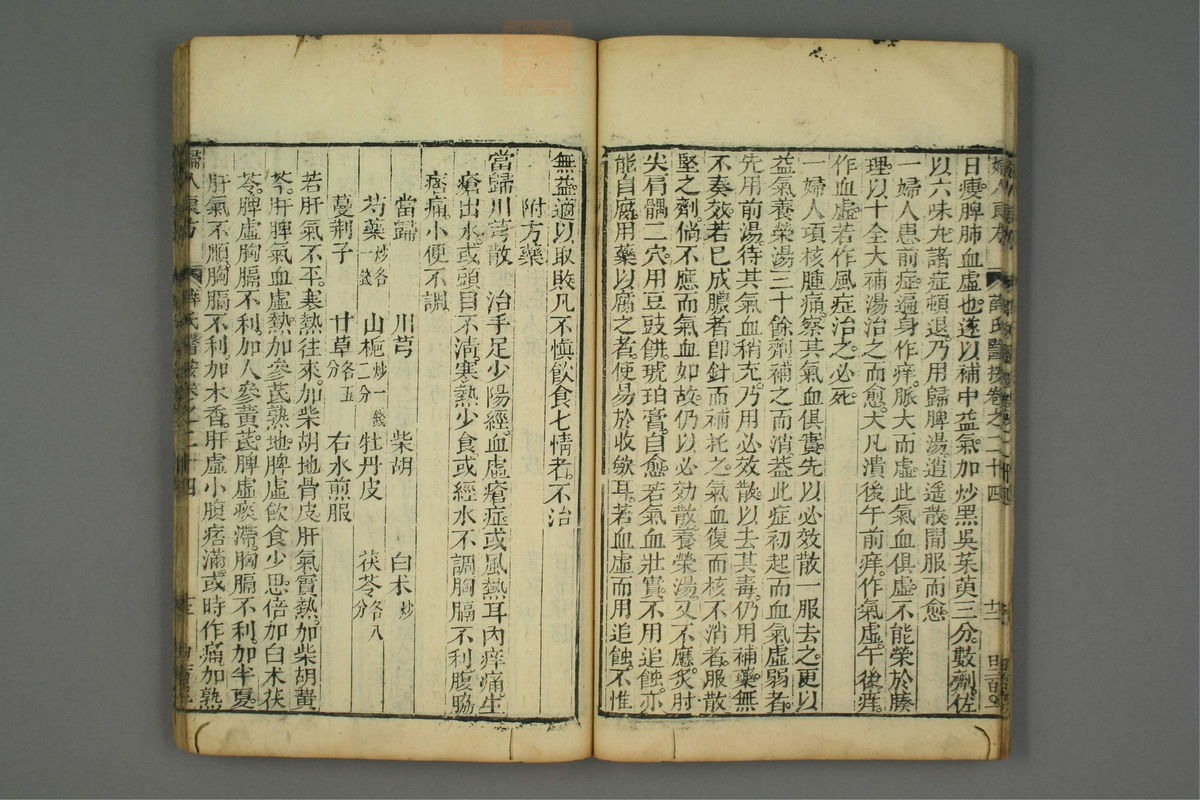 婦人良方 薛氏醫按卷之二十四 十二
日痩脾肺血虛也遂以補中益氣加炒黑吳茱萸三分數劑佐
以六味丸諸症頓退乃用歸脾湯逍遥散間服而愈
一婦人患前症遍身作痒脈大而虛此氣血俱虛不能榮於腠
理以十全大補湯治之而愈大凡潰後午前痒作氣虛午後痒
作血虛若作風症治之必死
一婦人項核腫痛察其氣血俱實先以必效散一服去之更以
益氣養榮湯三十餘劑補之而消葢此症初起而血氣虛弱者
先用前湯待其氣血稍充乃用必效散以去其毒仍用補藥無
不奏效若已成膿者卽針而補托之氣血復而核不消者服散
堅之劑倘不應而氣血如故仍以必効散養榮湯又不應炙肘
尖肩髃二穴用豆豉餅琥珀膏自愈若氣血壯實不用追蝕亦
能自腐用藥以腐之者使易於收斂耳若血虛而用追蝕不惟
無益適以取敗凡不愼飲食七情者不治
附方藥
當歸川芎散 治手足少陽經血虛瘡症或風熱耳內痒痛生
瘡出水或頭目不清寒熱少食或經水不調胸膈不利腹脇
痞痛小便不調
當歸 川芎 柴胡 白朮炒
芍藥炒各一錢 山梔炒一錢二分 牡丹皮 茯苓各八分
蔓荆子 甘草各五分 右水煎服
若肝氣不平寒熱往來加柴胡地骨皮肝氣實熱加柴胡黄
芩肝脾氣血虛熱加參芪熟地脾虛飲食少思倍加白朮茯
苓脾虛胸膈不利加人參黄芪脾虛痰滯胸膈不利加半夏
肝氣不順胸膈不利加木香肝虛小腹痞滿或時作痛加熟
婦人良方 薛氏醫按卷之二十四